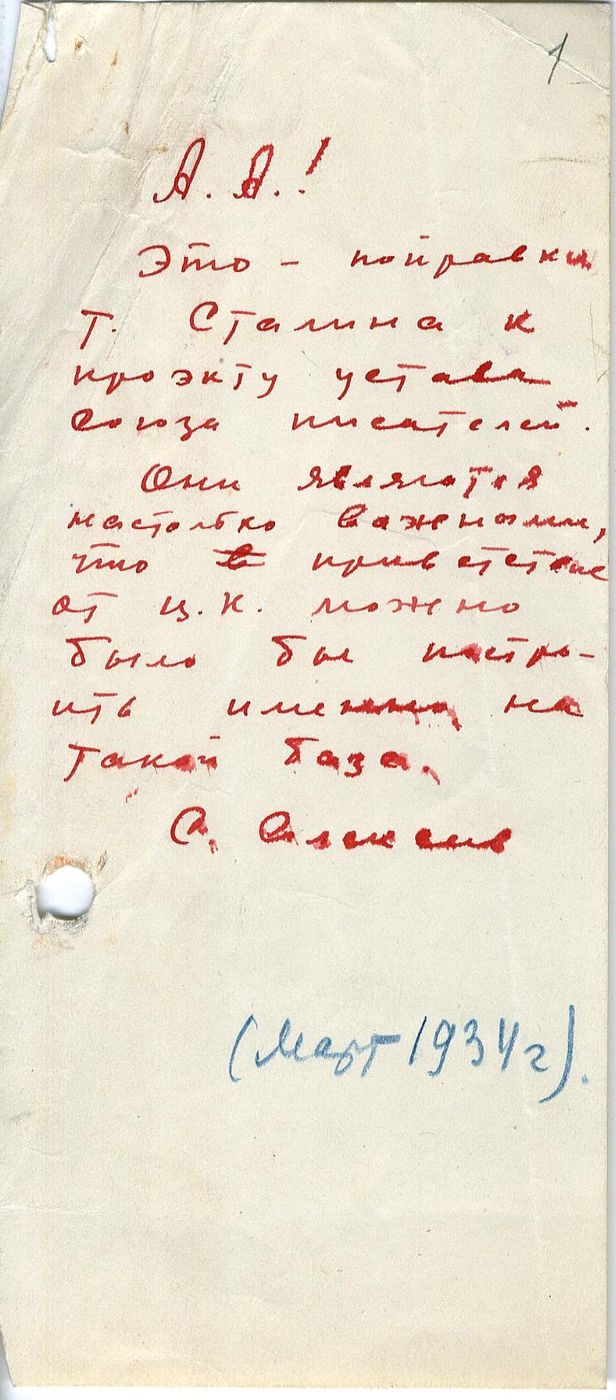 1
А. А.!
Это – поправки
т. Сталина к
проэкту устава
союза писателей.
Они являются
настолько важными,
что в приветствие
от Ц.К. можно
было бы постро-
ить именно на
такой база.
С. Алексеев
(Март 1934 г).